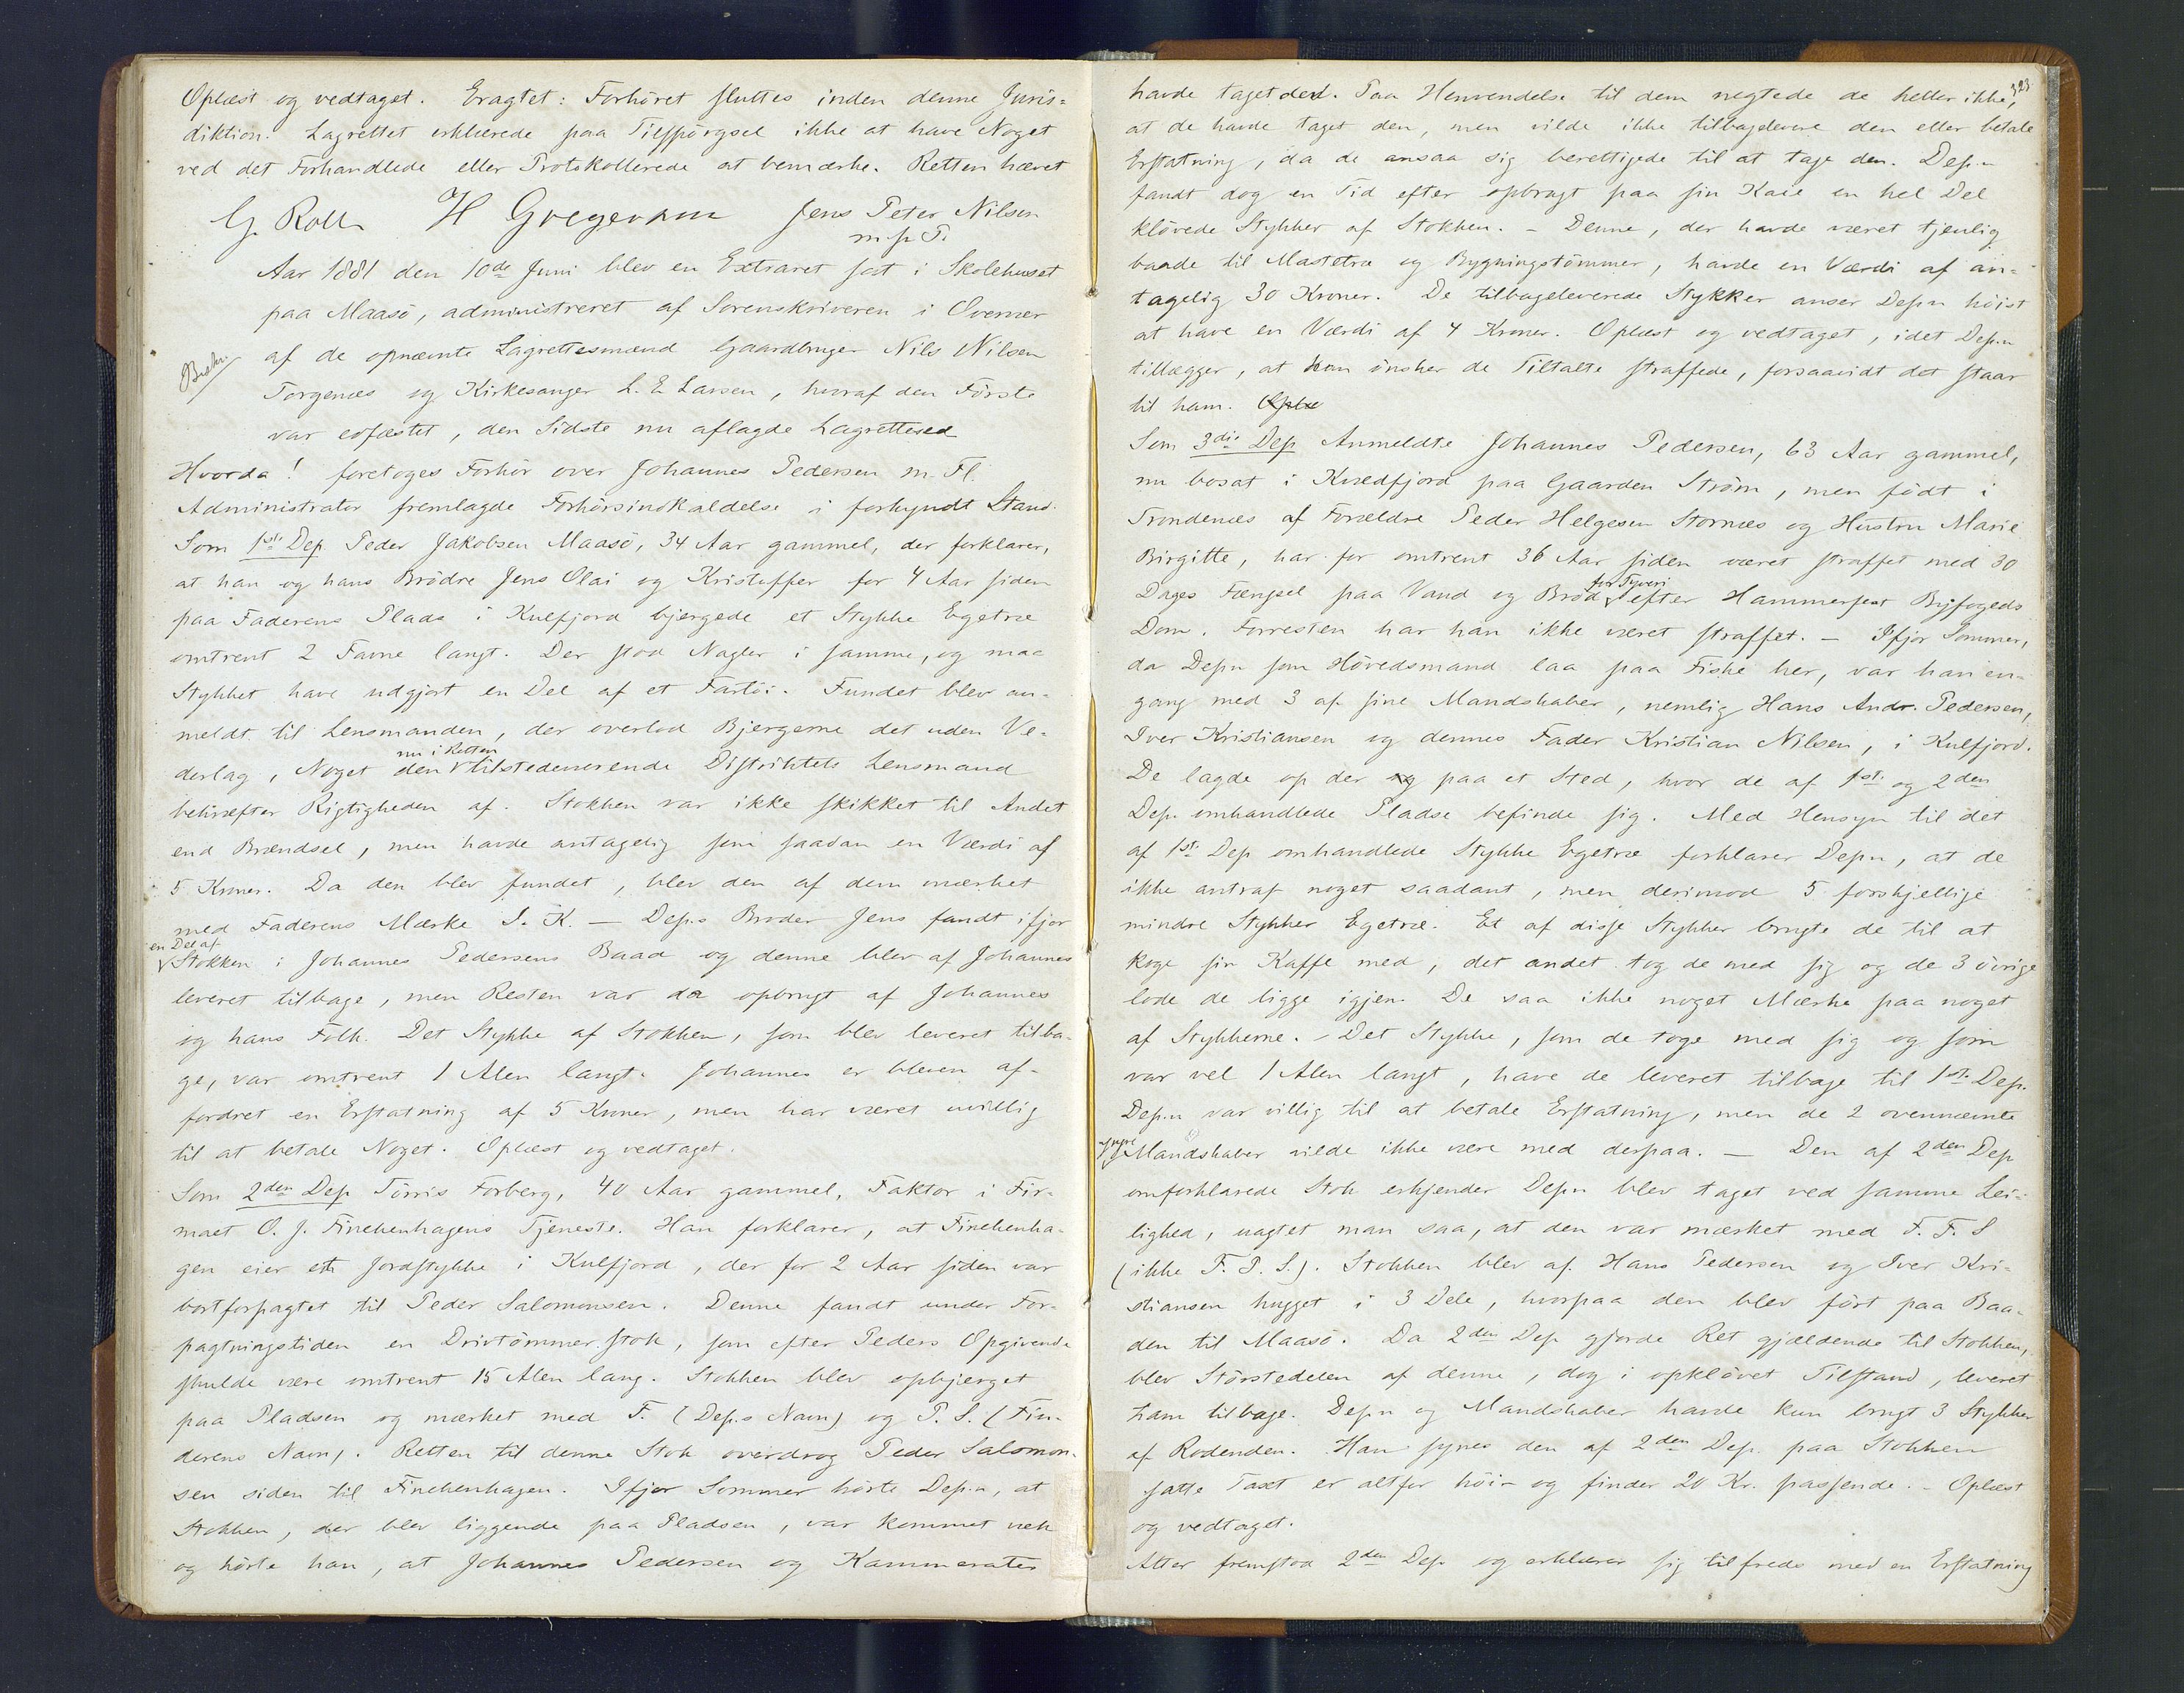 Oplæst og vedtaget. Eragtet: Forhöret sluttes inden denne Juris-
diktion. Lagrettet erklærede paa Tilspörgsel ikke at have Noget
ved det Forhandlede eller Protokollerede at bemærke. Retten hævet
G. Roll H Gregersen Jens Peter Nilsen
m. p. P.
Aar 1881 den 10de Juni blev en Extraret sat i Skolehuset
paa Maasö, administreret af Sorenskriveren i Overvær
af de opnævnte Lagrettesmænd Gaardbruger Nils Nilsen
Beskr.
Torgenæs og Kirkesanger L. E. Larsen, hvoraf den Förste
var edfæstet, den Sidste nu aflagde Lagrettesed
Hvorda! foretoges Forhör over Johannes Pedersen m. Fl.
Administrator fremlagde Forhörsindkaldelse i forkyndt Stand.
Som 1ste Dep. Peder Jakobsen Maasö, 34 Aar gammel, der forklarer,
at han og hans Brödre Jens Olai og Kristoffer for 4 Aar siden
paa Faderens Plads i Kulfjord bjergede et Stykke Egetræ
omtrent 2 Favne langt. Der stod Nagler i samme, og maa
Stykket have udgjort en Del af et Fartöi. Fundet blev an-
meldt til Lensmanden, der overlod Bjergerne det uden Ve-
nu i Retten
derlag, Noget den tilstedeværende Distriktets Lensmand
bekræfter Rigtigheden af. Stokken var ikke skikket til Andet
end Brændsel, men havde antagelig som saadan en Værdi af
5 Kroner. Da den blev fundet, blev den af dem mærket
med Faderens Mærke I. K. — Dep.s Broder Jens fandt ifjor
en Del af
Stokken i Johannes Pedersens Baad og denne blev af Johannes
leveret tilbage, men Resten var da opbrugt af Johannes
og hans Folk. Det Stykke af Stokken, som blev leveret tilba-
ge, var omtrent 1 Alen langt. Johannes er bleven af-
fordret en Erstatning af 5 Kroner, men har været uvillig
til at betale Noget. Oplæst og vedtaget.
Som 2den Dep Törris Forberg, 40 Aar gammel, Faktor i Fir-
maet O. J. Finckenhagens Tjeneste. Han forklarer, at Finckenha-
gen eier et Jordstykke i Kulfjord, der for 2 Aar siden var
bortforpagtet til Peder Salomonsen. Denne fandt under For-
pagtningstiden en Drivtömmerstok, som efter Peders Opgivende
skulde være omtrent 15 Alen lang. Stokken blev opbjerget
paa Pladsen og mærket med F. (Dep.s Navn) og P. S. (Fin-
derens Navn). Retten til denne Stok overdrog Peder Salomon-
sen siden til Finckenhagen. Ifjor Sommer hörte Dep.n, at
Stokken, der blev liggende paa Pladsen, var kommet væk
og hörte han, at Johannes Pedersen og Kammerater
323
havde taget den. Paa Henvendelse til dem negtede de heller ikke,
at de havde taget den, men vilde ikke tilbagelevere den eller betale
Erstatning, da de ansaa sig berettigede til at tage den. Dep.n
fandt dog en Tid efter opbragt paa sin Kaie en hel Del
klövede Stykker af Stokken. – Denne, der havde været tjenlig
baade til Mastetræ og Bygningstömmer, havde en Værdi af an-
tagelig 30 Kroner. De tilbageleverede Stykker anser Dep.n höist
at have en Værdi af 4 Kroner. Oplæst og vedtaget, idet Dep.n
tillægger, at han önsker de Tiltalte straffede, forsaavidt det staar
til ham. Oplæ
Som 3die Dep Anmeldte Johannes Pedersen, 63 Aar gammel,
nu bosat i Kvædfjord paa Gaarden Ström, men födt i
Trondenæs af Forældre Peder Helgesen Stornæs og Hustru Marie
Birgitte, har for omtrent 36 Aar siden været straffet med 30
for Tyveri
Dages Fængsel paa Vand og Bröd efter Hammerfest Byfogeds
Dom. Forresten har han ikke været straffet. – Ifjor Sommer,
da Depn som Hövedsmand laa paa Fiske her, var han en-
gang med 3 af sine Mandskaber, nemlig Hans Andr. Pedersen,
Iver Kristiansen og dennes Fader Kristian Nilsen, i Kulfjord.
De lagde op der og paa et Sted, hvor de af 1ste og 2den
Dep. omhandlede Pladse befinde sig. Med Hensyn til det
af 1ste Dep omhandlede Stykke Egetræ forklarer Depn, at de
ikke antraf noget saadant, men derimod 5 forskjellige
mindre Stykker Egetræ. Et af disse Stykker brugte de til at
koge sin Kaffe med, det andet tog de med sig og de 3 övrige
lode de ligge igjen. De saa ikke noget Mærke paa noget
af Stykkerne. – Det Stykke, som de toge med sig og som
var vel 1 Alen langt, have de leveret tilbage til 1ste Dep.
Dep.n var villig til at betale Erstatning, men de 2 ovennævnte
yngre
Mandskaber vilde ikke være med derpaa. — Den af 2den Dep
omforklarede Stok erkjender Depn blev taget ved samme Lei-
lighed, uagtet man saa, at den var mærket med F. F. S
(ikke F. P. S.). Stokken blev af Hans Pedersen og Iver Kri-
stiansen hugget i 3 Dele, hvorpaa den blev fört paa Baa-
den til Maasö. Da 2den Dep gjorde Ret gjældende til Stokken,
blev Störstedelen af denne, dog i opklövet Tilstand, leveret
ham tilbage. Dep.n og Mandskaber havde kun brugt 3 Stykker
af Rodenden. Han synes den af 2den Dep. paa Stokken
satte Taxt er altfor höi og finder 20 Kr. passende. – Oplæst
og vedtaget.
Atter fremstod 2den Dep og erklærer sig tilfreds med en Erstatning